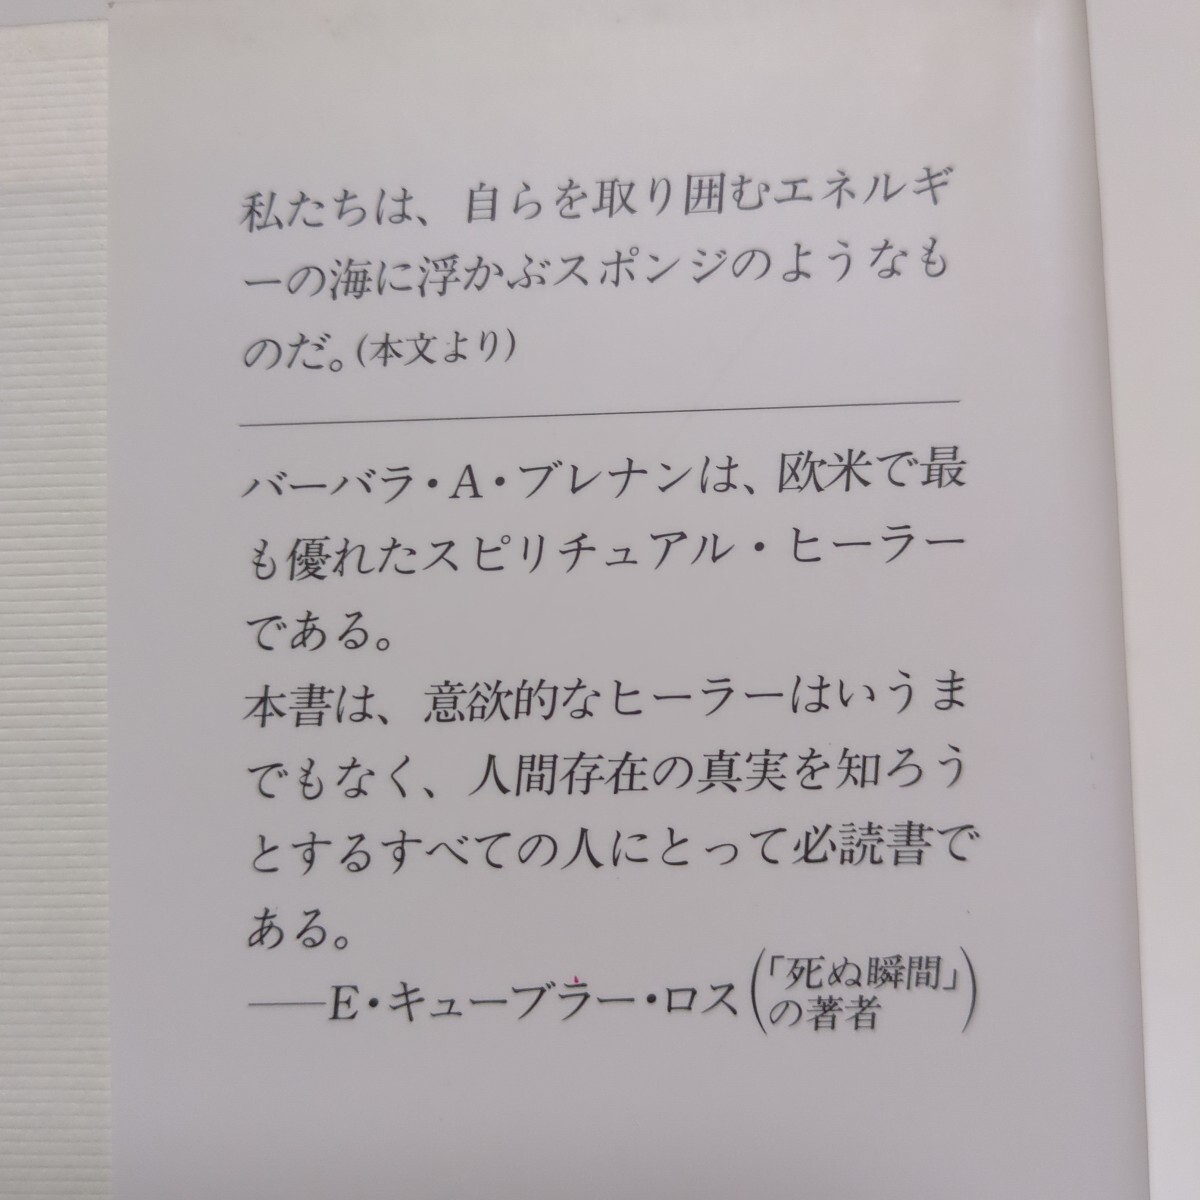 私たちは、自らを取り囲むエネルギ
ーの海に浮かぶスポンジのようなも
のだ。(本文より)
バーバラ・A・ブレナンは、欧米で最
も優れたスピリチュアル・ヒーラー
である。
本書は、意欲的なヒーラーはいうま
でもなく、人間存在の真実を知ろう
とするすべての人にとって必読書で
ある。
――E・キューブラー・ロス(「死ぬ瞬間」
の著者)